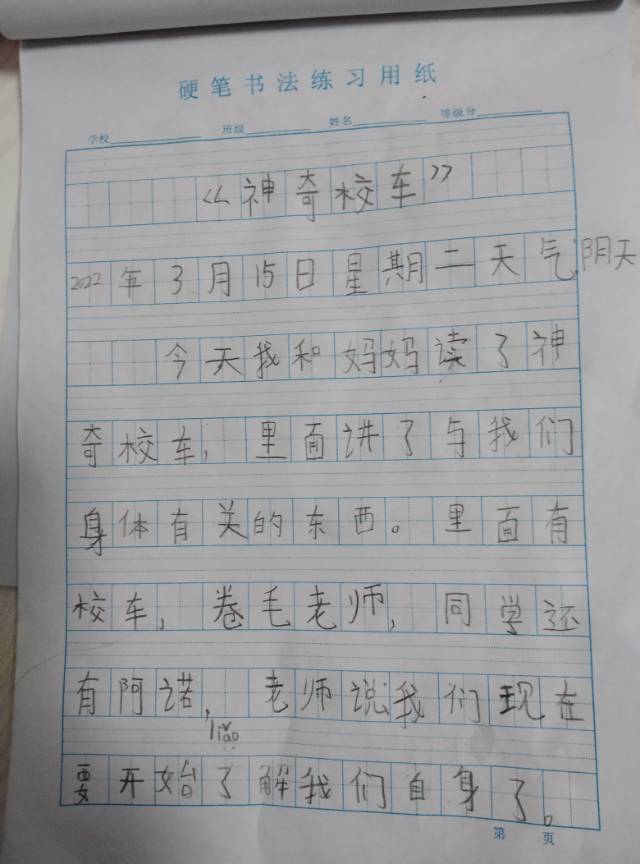 硬笔书法练习用纸
学校 班级 姓名 等级分
《神奇校车》
2022年3月15日星期二天气阴天
今天我和妈妈读了神
奇校车，里面讲了与我们
身体有关的东西。里面有
校车，卷毛老师，同学还
有阿诺，老师说我们现在
liǎo
要开始了解我们自身了。
第 页